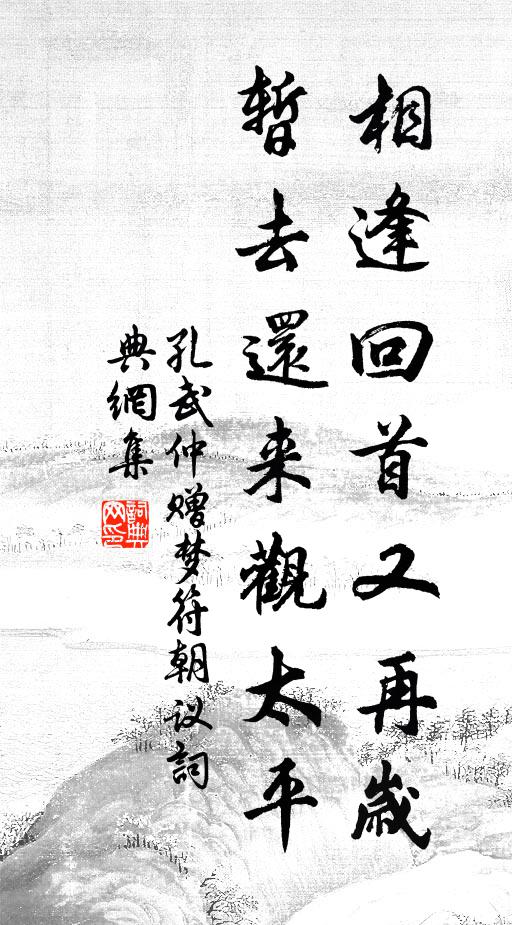 相逢回首又再歲
暫去還来觀太平
孔武仲赠梦符朝议詞
典網集
詞典网印